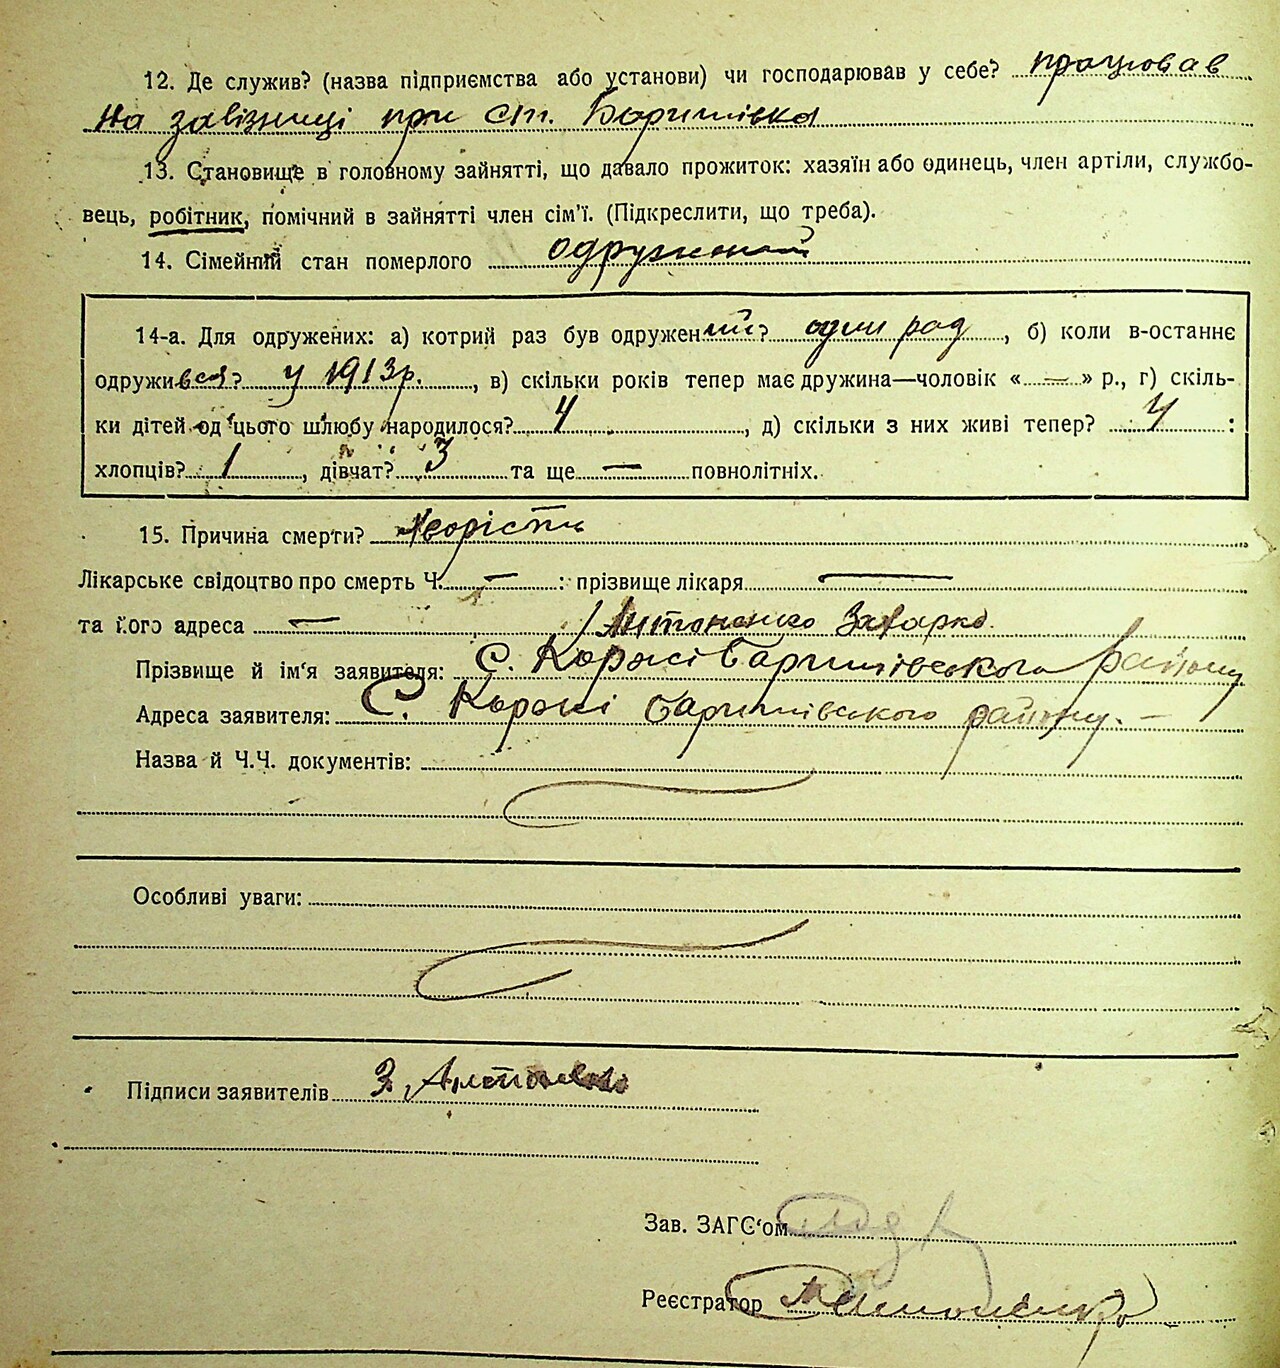 12. Де служив? (назва підприємства або установи) чи господарював у себе? працював
на залізниці при ст. Баришівка
13. Становище в головному зайнятті, що давало прожиток: хазяїн або одинець, член артіли, службо-
вець, робітник, помічний в зайнятті член сім'ї. (Підкреслити, що треба).
14. Сімейний стан померлого одружений
14-а. Для одружених: а) котрий раз був одружений? один раз, б) коли в-останнє
одружився? у 1913 р., в) скільки років тепер має дружина—чоловік «—» р., г) скіль-
ки дітей од цього шлюбу народилося? 4, д) скільки з них живі тепер? 4:
хлопців? 1, дівчат? 3 та ще — повнолітніх.
15. Причина смерти?
Лікарське свідоцтво про смерть Ч. — : прізвище лікаря —
та його адреса — / Антоненко Захарко
Прізвище й ім'я заявителя: С. Коржі Баришівського району
Адреса заявителя: С. Коржі Баришівського району. —
Назва й Ч.Ч. документів:
Особливі уваги:
Підписи заявителів З. Антоненко
Зав. ЗАГС'ом
Реєстратор